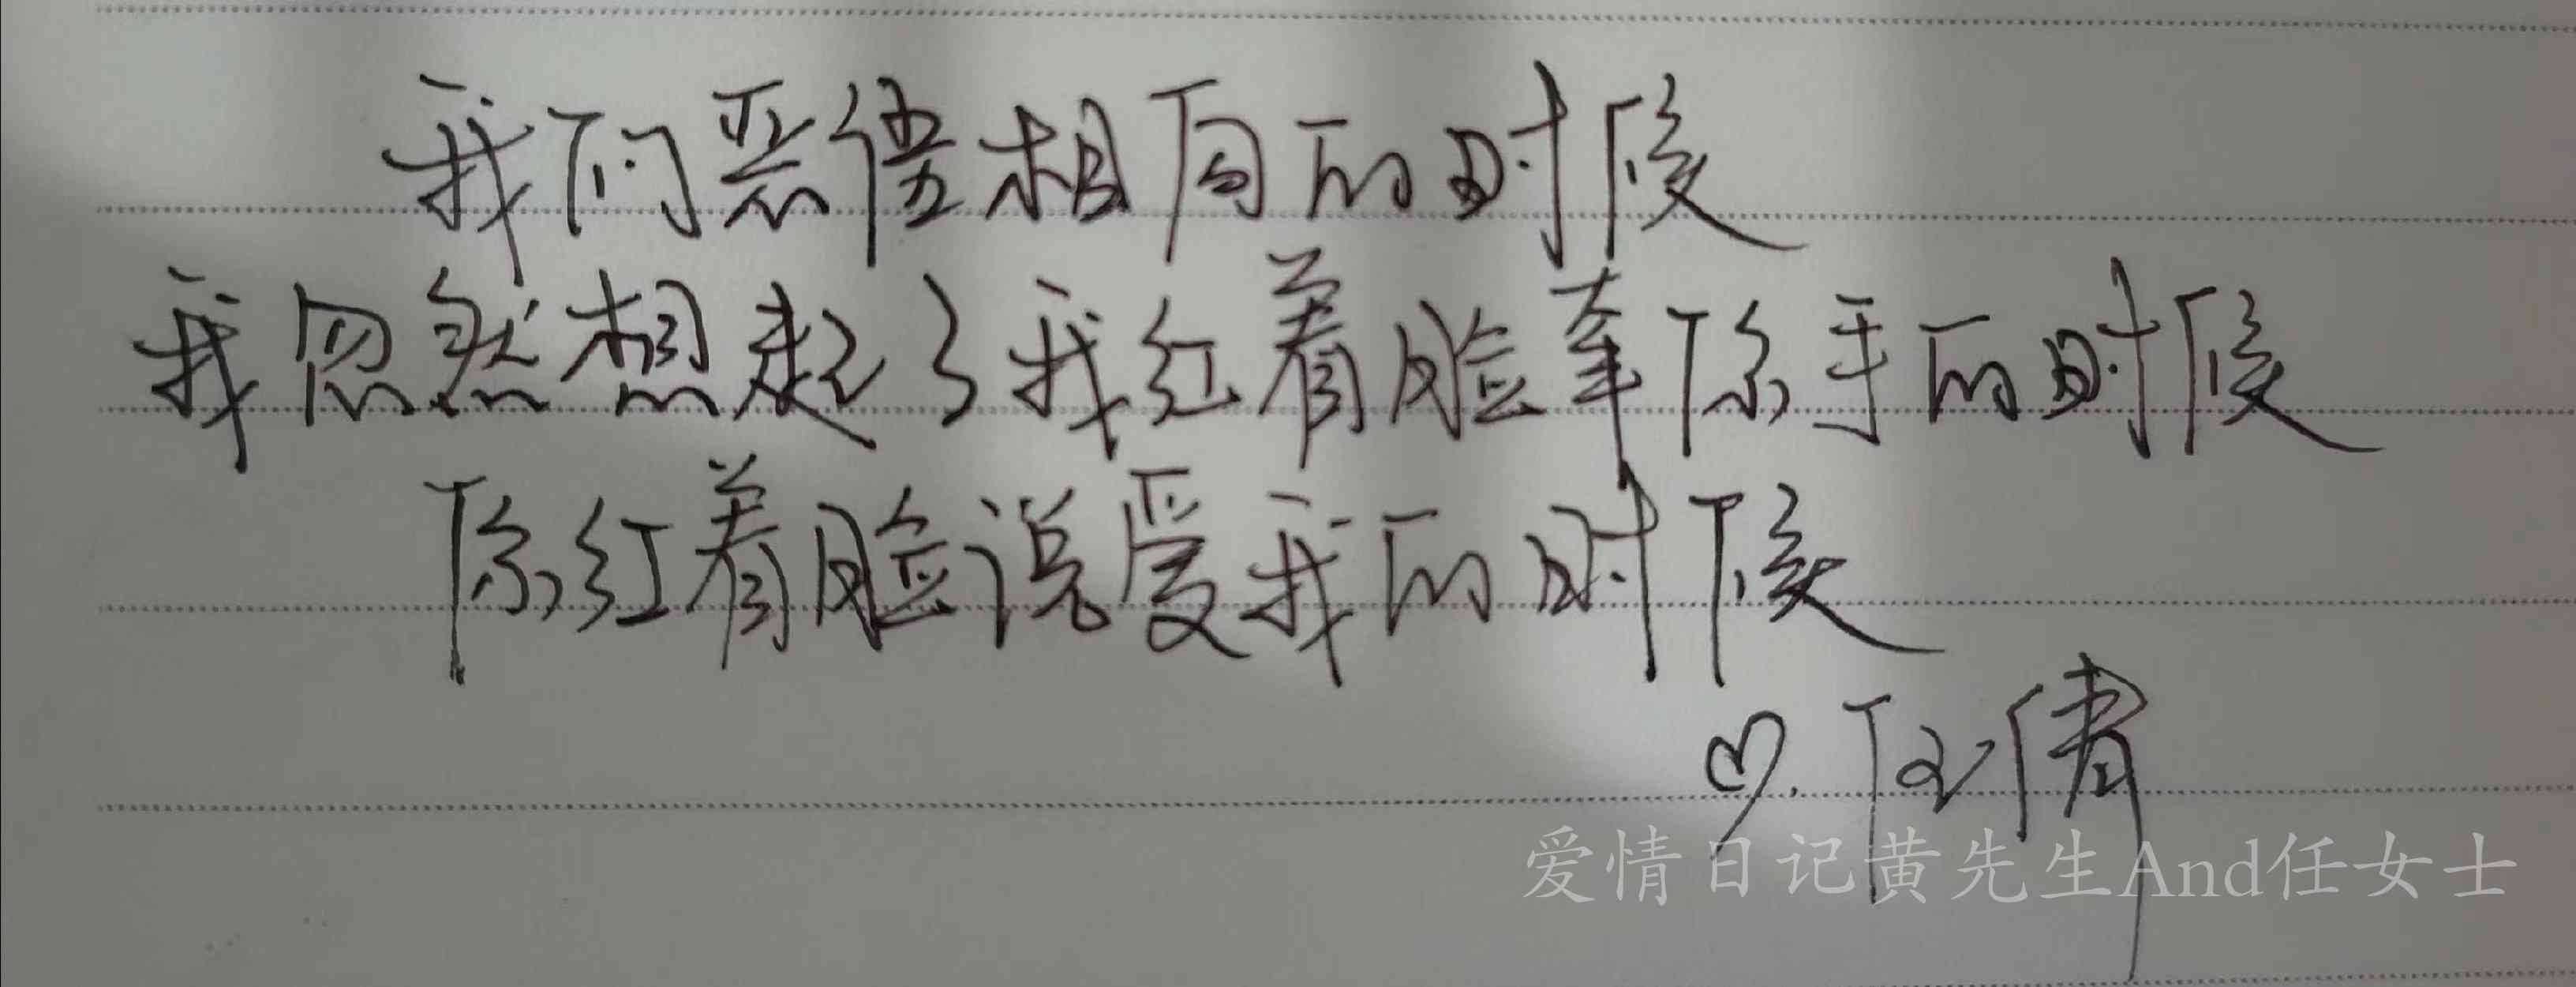 我们恶语相向的时候
我忽然想起了我红着脸牵你手的时候
你红着脸说爱我的时候
♡.任倩
爱情日记黄先生And任女士